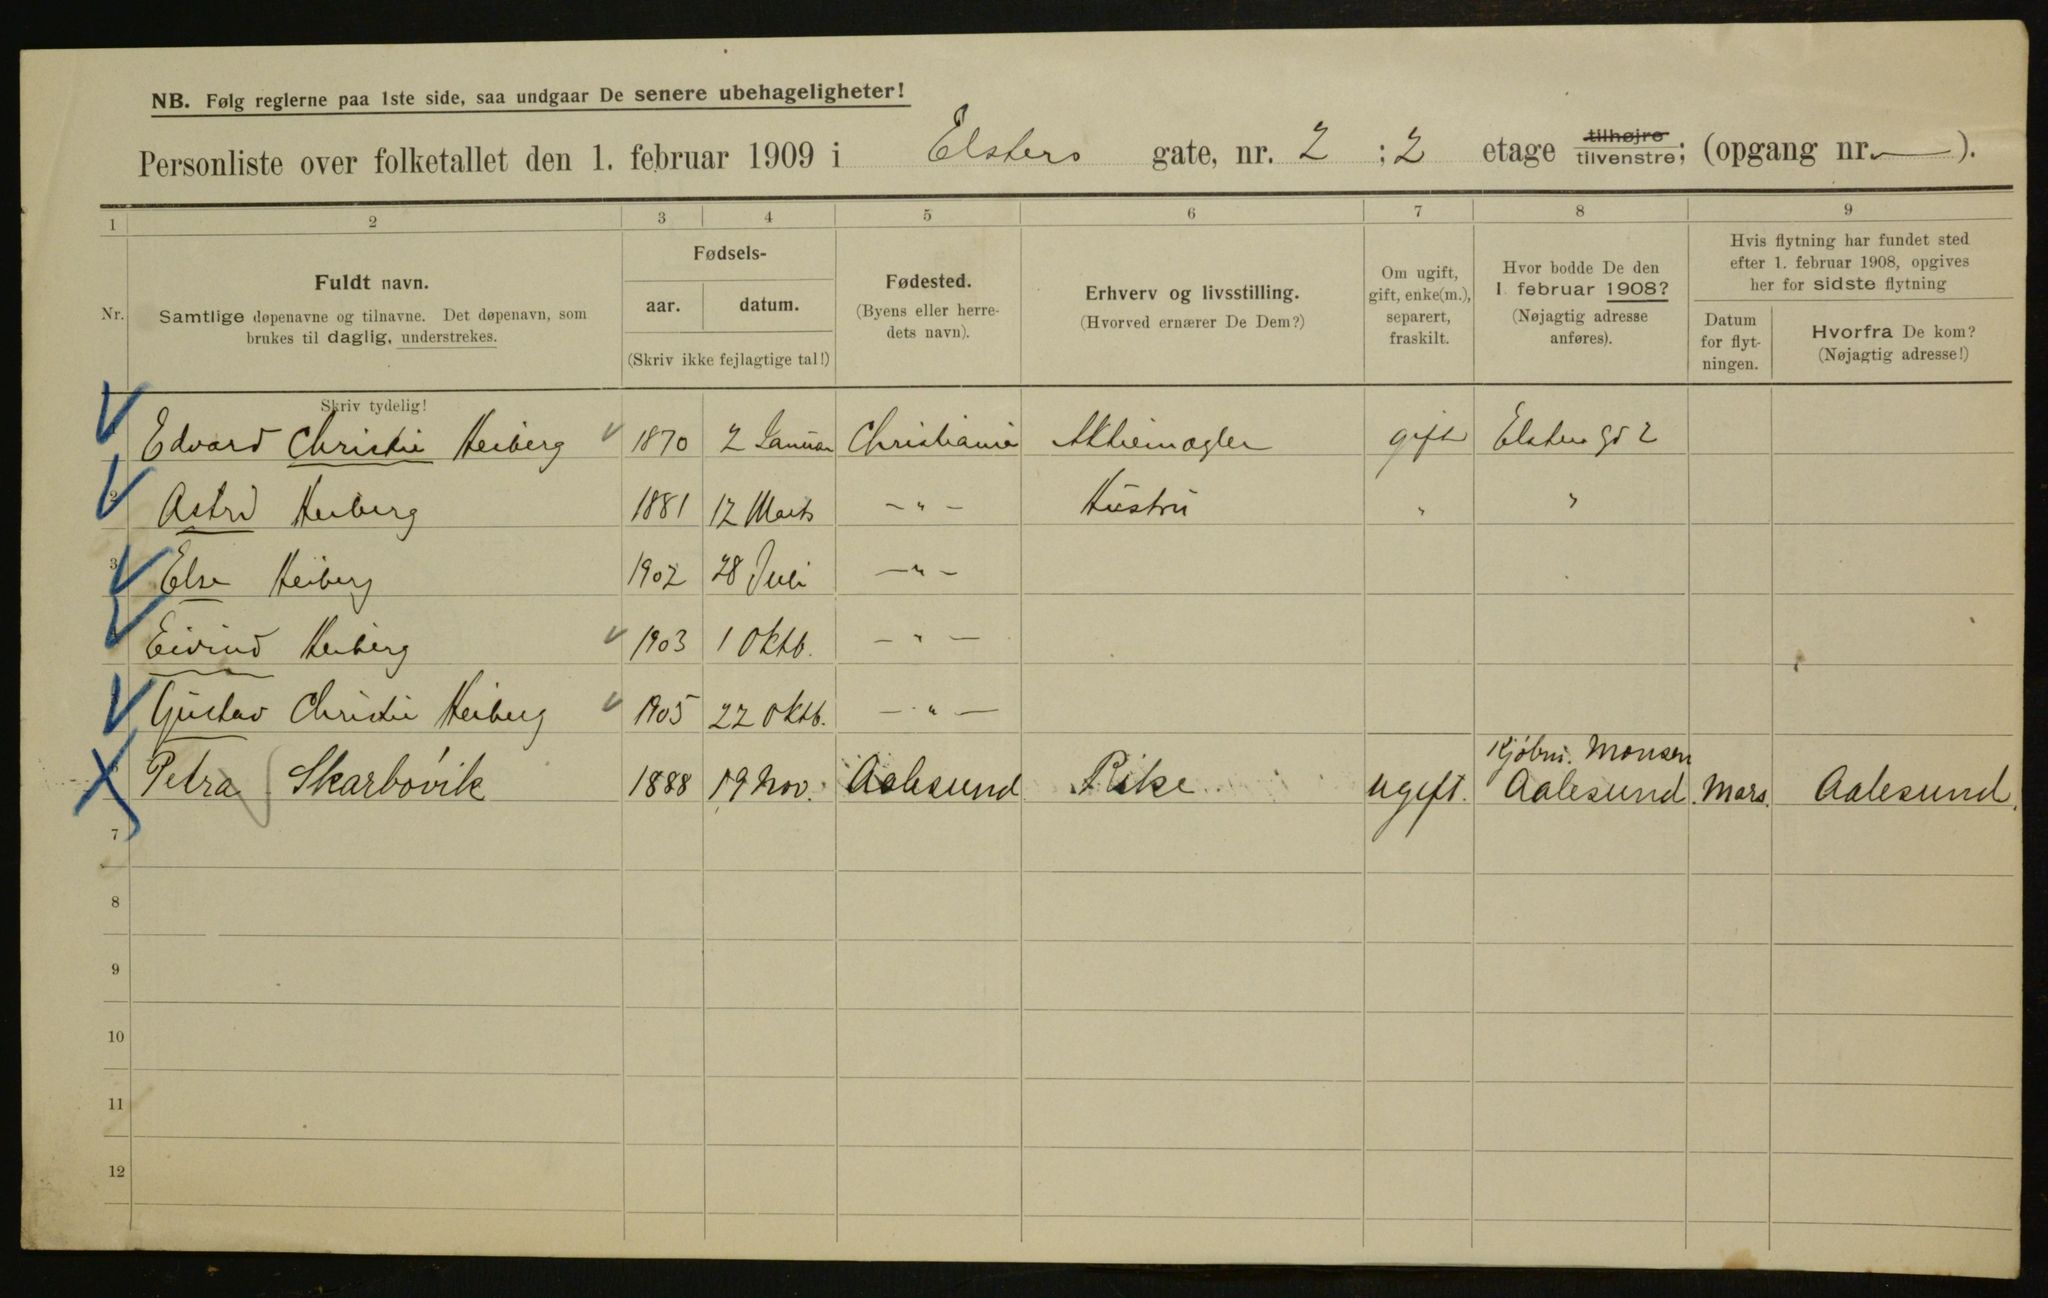 NB. Følg reglerne paa 1ste side, saa undgaar De senere ubehageligheter!
Personliste over folketallet den 1. februar 1909 i Elsters gate, nr. 2 ; 2 etage tilhøjre tilvenstre; (opgang nr. — ).
1 2 3 4 5 6 7 8 9
Nr.
Fuldt navn.
Samtlige døpenavne og tilnavne. Det døpenavn, som
brukes til daglig, understrekes.
Fødsels-
aar. datum.
(Skriv ikke fejlagtige tal!)
Fødested.
(Byens eller herre-
dets navn).
Erhverv og livsstilling.
(Hvorved ernærer De Dem?)
Om ugift,
gift, enke(m.),
separert,
fraskilt.
Hvor bodde De den
1. februar 1908?
(Nøjagtig adresse
anføres).
Hvis flytning har fundet sted
efter 1. februar 1908, opgives
her for sidste flytning
Datum
for flyt-
ningen.
Hvorfra De kom?
(Nøjagtig adresse!)
Skriv tydelig!
Edvard Christie Heiberg 1870 2 Januar Christiania Aktiemægler gift Elsters gd 2
2 Astrid Heiberg 1881 12 Marts — " — Hustru " "
3 Else Heiberg 1902 28 Juli — " —
Eivind Heiberg 1903 1 Oktb. — " —
Gustav Christie Heiberg 1905 22 Oktb. — " —
Kjøbm. Monsen
6 Petra Skarbøvik 1888 19 Nov. Aalesund Pike ugift. Aalesund. Mars. Aalesund.
7
8
9
10
11
12